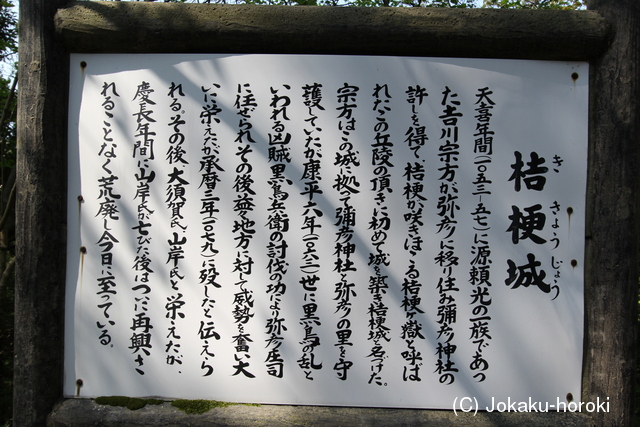 桔梗城
ききょうじょう
天喜年間(一〇五三-五七)に源頼光の一族であっ
た吉川宗方が弥彦に移り住み彌彦神社の
許しを得て、桔梗が咲きほこる桔梗ヶ嶽と呼ば
れたこの丘陵の頂きに初めて城を築き桔梗城と名づけた。
宗方はこの城に拠って彌彦神社と弥彦の里を守
護していたが康平六年(一〇六三)世に黒鳥の乱と
いわれる凶賊黒鳥兵衛の討伐の功により弥彦庄司
に任ぜられ、その後益々地方に対て威勢を奮い大
いに栄えたが承暦三年(一〇七九)に歿したと伝えら
れる。その後、大須賀氏、山岸氏と栄えたが、
慶長年間に山岸氏が亡びた後はついに再興、さ
れることなく荒廃し今日に至っている。
(C) Jokaku-horoki